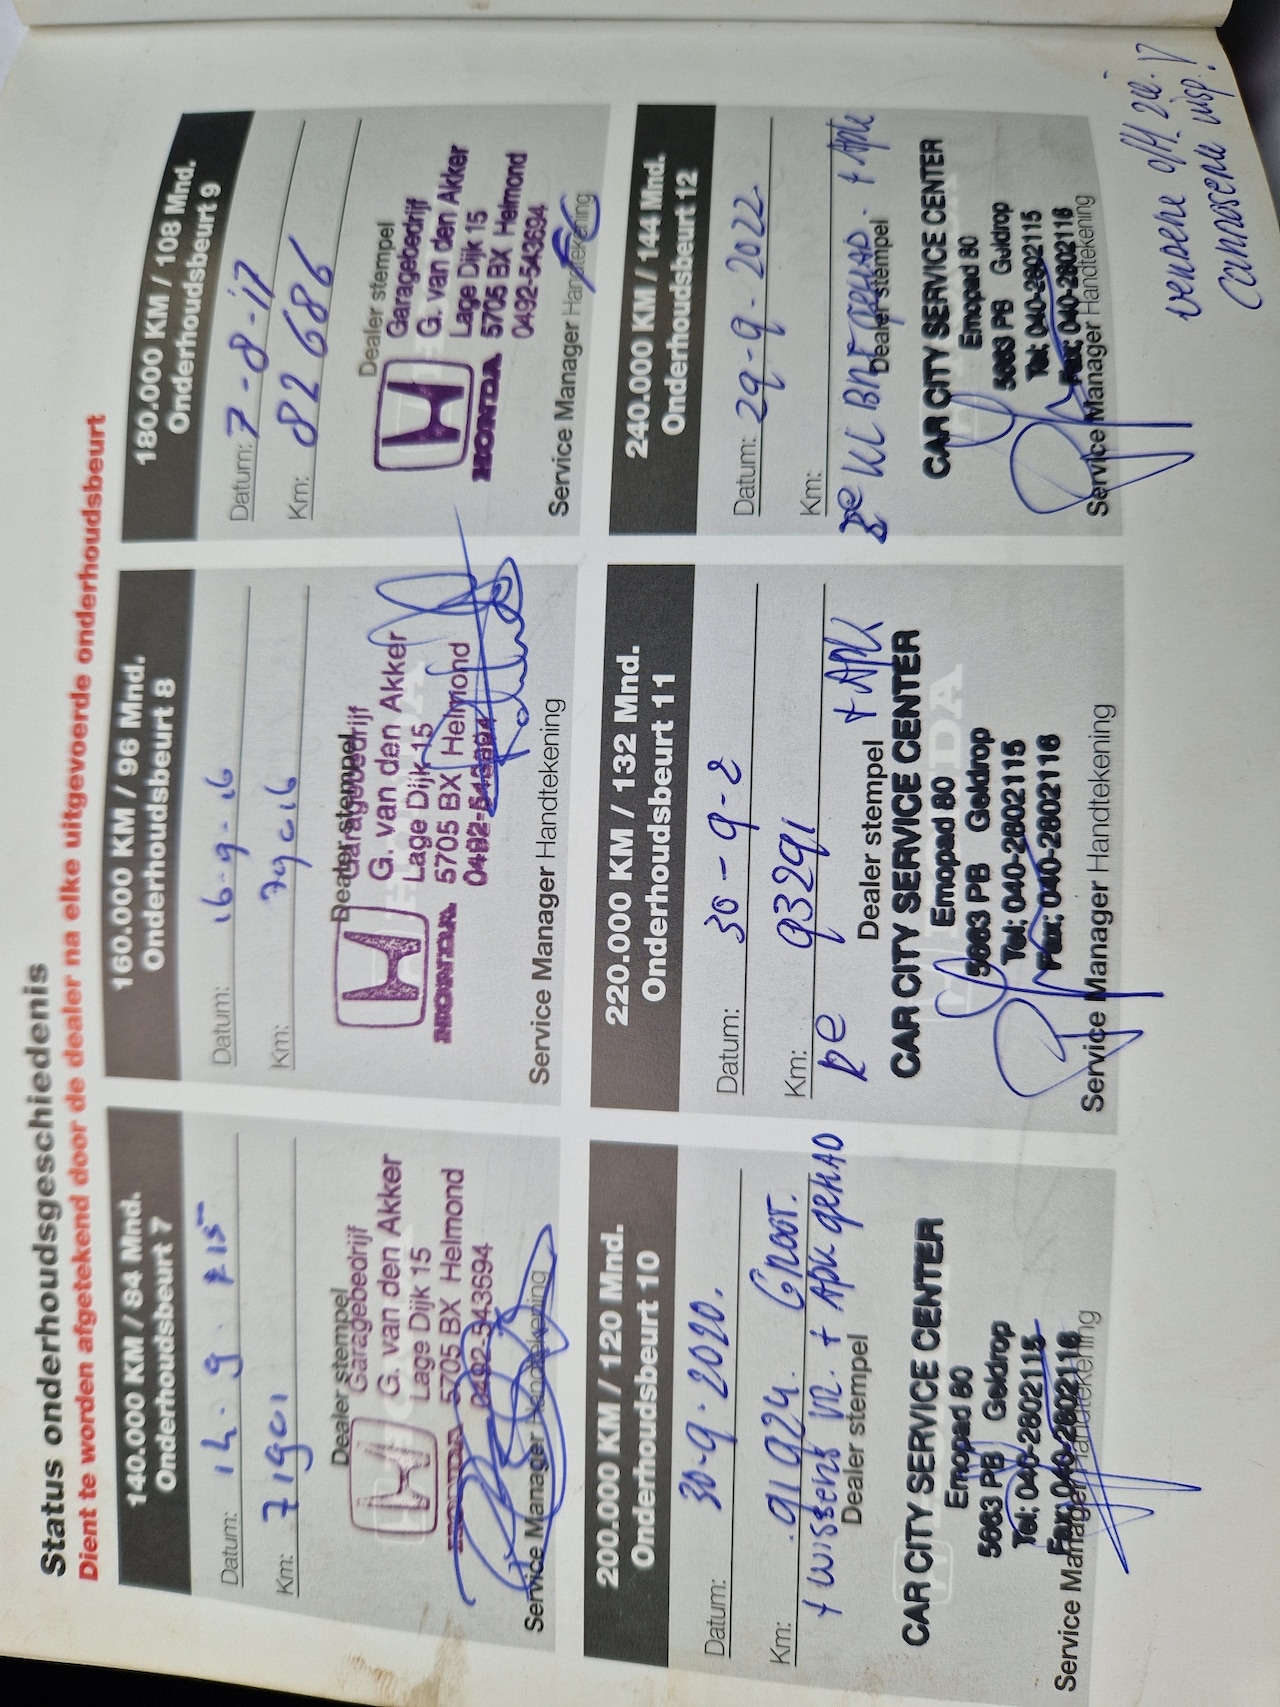 Status onderhoudsgeschiedenis
Dient te worden afgetekend door de dealer na elke uitgevoerde onderhoudsbeurt
140.000 KM / 84 Mnd.
Onderhoudsbeurt 7
Datum: 14. 9. 15
Km: 71901
Dealer stempel
Garagebedrijf
G. van den Akker
Lage Dijk 15
5705 BX Helmond
0492-543694
HONDA
Service Manager Handtekening
160.000 KM / 96 Mnd.
Onderhoudsbeurt 8
Datum: 16-9-16
Km: 79016
Dealer stempel
Garagebedrijf
G. van den Akker
Lage Dijk 15
5705 BX Helmond
0492-543694
HONDA
Service Manager Handtekening
180.000 KM / 108 Mnd.
Onderhoudsbeurt 9
Datum: 7-8-'17
Km: 82686
Dealer stempel
Garagebedrijf
G. van den Akker
Lage Dijk 15
5705 BX Helmond
0492-543694
HONDA
Service Manager Handtekening
200.000 KM / 120 Mnd.
Onderhoudsbeurt 10
Datum: 30-9-2020.
Km: 91924. Groot.
+ wissers vv. + APK gehad
Dealer stempel
CAR CITY SERVICE CENTER
Emopad 80
5663 PB Geldrop
Tel: 040-2802115
Fax: 040-2802116
Service Manager Handtekening
220.000 KM / 132 Mnd.
Onderhoudsbeurt 11
Datum: 30-9-2
Km: 93291
+ APK
Dealer stempel
CAR CITY SERVICE CENTER
Emopad 80
5663 PB Geldrop
Tel: 040-2802115
Fax: 040-2802116
Service Manager Handtekening
240.000 KM / 144 Mnd.
Onderhoudsbeurt 12
Datum: 29-9-2022.
Km:
gehad. + APK
Dealer stempel
CAR CITY SERVICE CENTER
Emopad 80
5663 PB Geldrop
Tel: 040-2802115
Fax: 040-2802116
Service Manager Handtekening
verdere